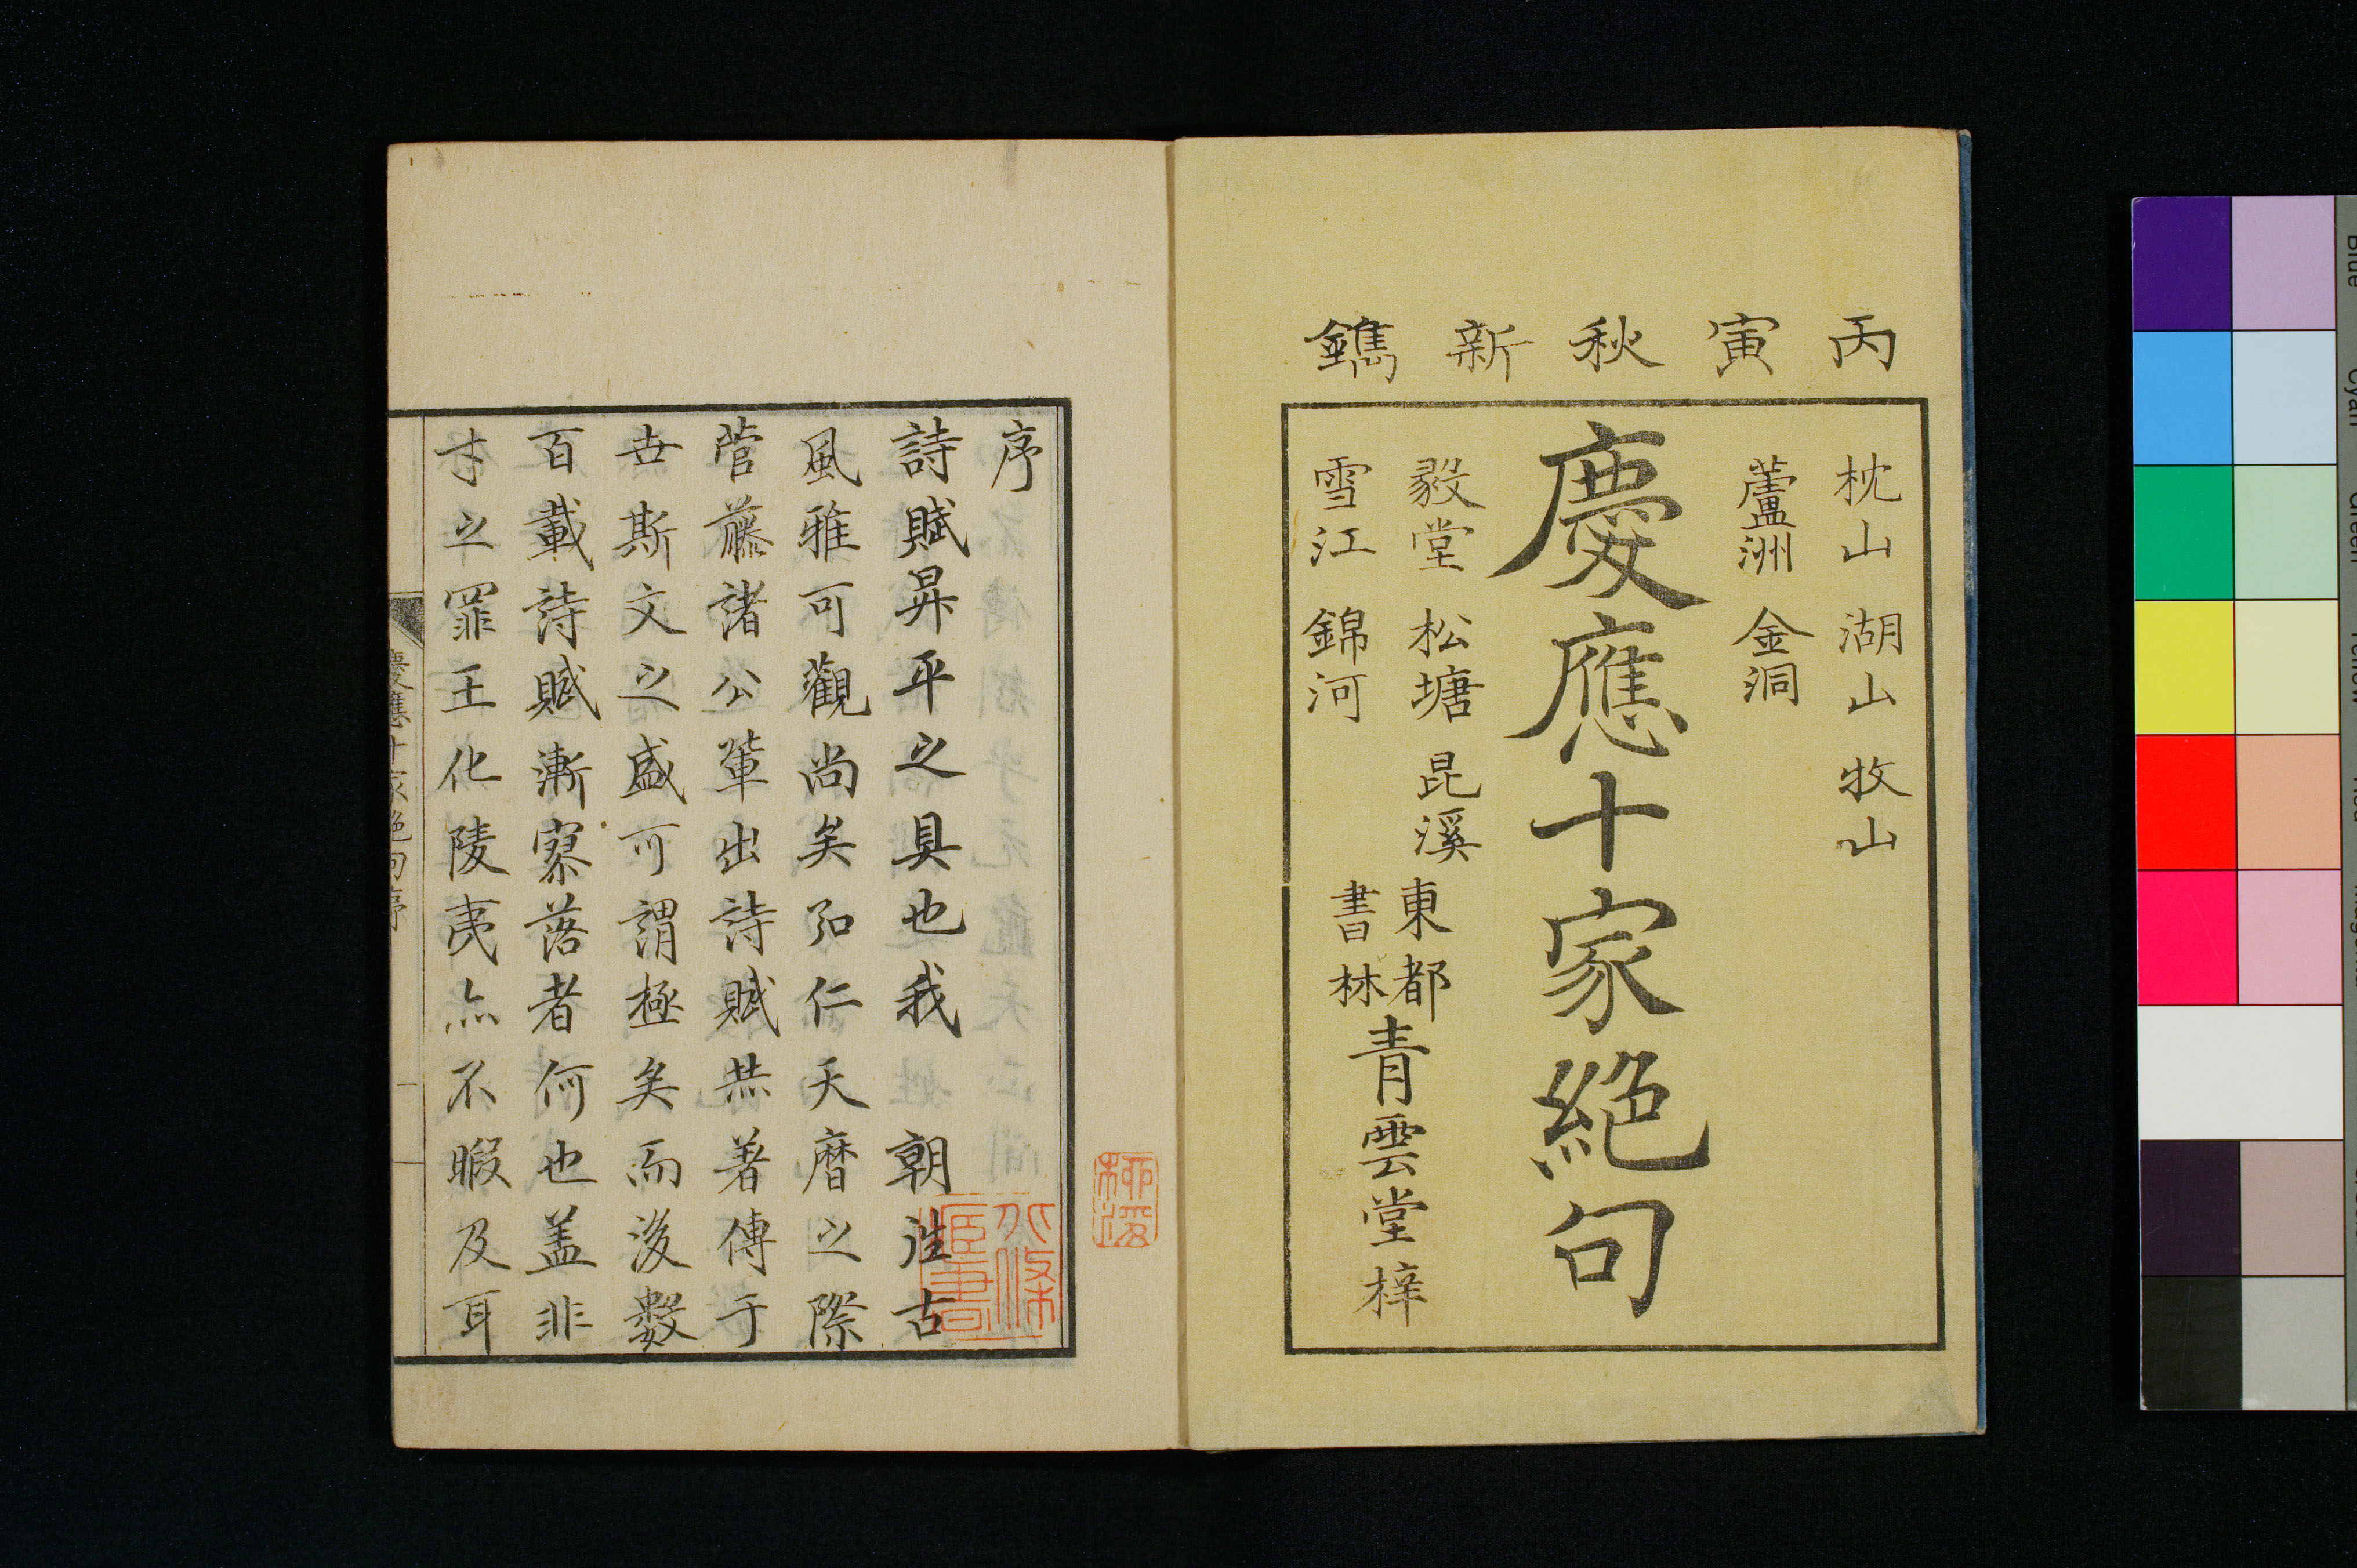 丙寅秋新鐫
枕山 湖山 牧山
蘆洲 金洞
慶應十家絕句
毅堂 松塘 昆溪
雪江 錦河
東都
書林
青雲堂梓
序
詩賦昇平之具也我 朝往古
風雅可觀尚矣弘仁天曆之際
菅藤諸公輩出詩賦共著傳于
世斯文之盛可謂極矣而後數
百載詩賦漸寥落者何也蓋非
才之罪王化陵夷亦不暇及耳
慶應十家絕句序
Blue
Cyan
Green
Yellow
Red